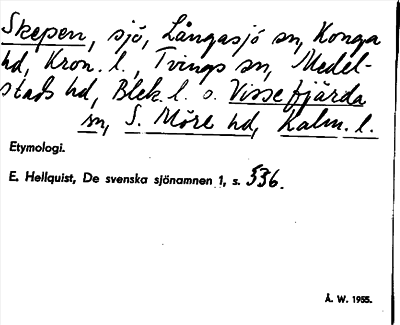 Skepen, sjö, Långasjö sn, Konga
hd, Kron. l., Tvings sn, Medel-
stads hd, Blek. l. o. Vissefjärda
sn, S. Möre hd, Kalm. l.
Etymologi.
E. Hellquist, De svenska sjönamnen 1, s. 536.
Å. W. 1955.